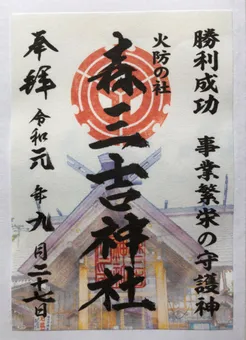 勝利成功 事業繁栄の守護神
火防の社
森三吉神社
奉拝
令和元年九月二十七日